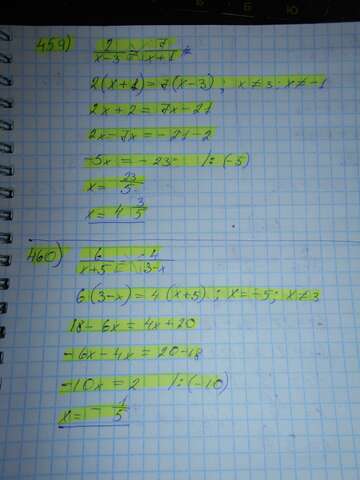 459) 2/(x-3) = 7/(x+1)
2(x+1) = 7(x-3) ; x≠3; x≠-1
2x+2 = 7x-21
2x-7x = -21-2
-5x = -23 /:(-5)
x = 23/5
x = 4 3/5
460) 6/(x+5) = 4/(3-x)
6(3-x) = 4(x+5) ; x≠-5; x≠3
18-6x = 4x+20
-6x-4x = 20-18
-10x = 2 /:(-10)
x = -1/5